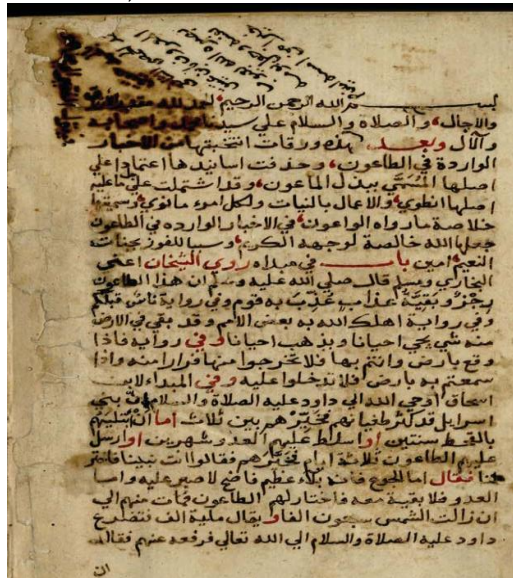 بسم الله الرحمن الرحيم الحمد لله مقدر
والاجال، والصلاة والسلام علي سيدنا محمد واصحابه
والآل وبعد فهذه ورقات انتخبتها من الاخبار
الواردة في الطاعون، وحذفت اسانيدها اعتمادا علي
اصلها المسمي ببذل الماعون، وقد اشتملت علي ما عليه
اصلها انطوي، والاعمال بالنيات ولكل امرء ما نوي، وسميتها
خلاصة ما رواه الواعون، في الاخبار الوارده في الطاعون
جعلها الله خالصة لوجهه الكريم، وسببا للفوز بجنات
النعيم، امين باب في مبداه روي الشيخان اعني
البخاري ومسلم قال صلي الله عليه وسلم ان هذا الطاعون
رجز وبقية عذاب عذب به قوم وفي رواية ناس قبلكم
وفي رواية اهلك الله به بعض الامم وقد بقي في الارض
منه شي يجي احيانا ويذهب احيانا وفي رواية فاذا
وقع بارض وانتم بها فلا تخرجوا منها فرارا منه واذا
سمعتم به بارض فلا تدخلوا عليه وفي المبتداء لابن
اسحاق اوحي الله الي داود عليه الصلاة والسلام ان بني
اسرايل قد كثر طغيانهم فخيرهم بين ثلاث اما ان ابتليهم
بالقحط سنتين او اسلط عليهم العدو شهرين او ارسل
عليهم الطاعون ثلاثة ايام فخيرهم فقالوا انت نبينا فاختر
لنا فقال اما الجوع فانه بلاء عظيم فاضح لا صبر عليه واما
العدو فلا بقية معه فاختار لهم الطاعون فمات منهم الي
ان زالت الشمس سبعون الفا ويقال ماية الف فتضرع
داود عليه الصلاة والسلام الي الله تعالي فرفعه عنهم فقال
ان